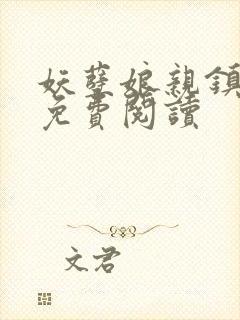 妖孽娘親鎮
免費閱讀
文君